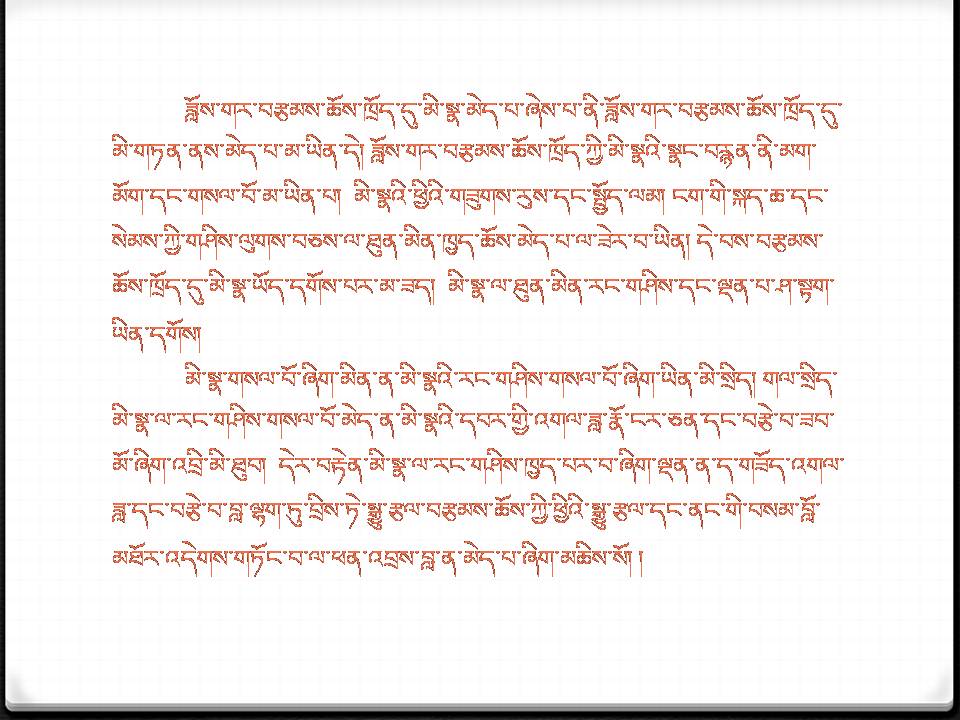 ཟློས་གར་བརྩམས་ཆོས་ཁྲོད་དུ་མི་སྣ་མེད་པ་ཞེས་པ་ནི་ཟློས་གར་བརྩམས་ཆོས་ཁྲོད་དུ་
མི་གཏན་ནས་མེད་པ་མ་ཡིན་ཏེ། ཟློས་གར་བརྩམས་ཆོས་ཁྲོད་ཀྱི་མི་སྣའི་སྣང་བརྙན་ནི་མག་
མོག་དང་གསལ་པོ་མ་ཡིན་པ། མི་སྣའི་ཕྱིའི་གཟུགས་རུས་དང་སྤྱོད་ལམ། ངག་གི་སྐད་ཆ་དང་
སེམས་ཀྱི་གཤིས་ལུགས་བཅས་ལ་ཐུན་མིན་ཁྱད་ཆོས་མེད་པ་ལ་ཟེར་བ་ཡིན། དེ་བས་བརྩམས་
ཆོས་ཁྲོད་དུ་མི་སྣ་ཡོད་དགོས་པར་མ་ཟད། མི་སྣ་ལ་ཐུན་མིན་རང་གཤིས་དང་ལྡན་པ་ཤ་སྟག་
ཡིན་དགོས།
མི་སྣ་གསལ་པོ་ཞིག་མིན་ན་མི་སྣའི་རང་གཤིས་གསལ་པོ་ཞིག་ཡིན་མི་སྲིད། གལ་སྲིད་
མི་སྣ་ལ་རང་གཤིས་གསལ་པོ་མེད་ན་མི་སྣའི་དབར་གྱི་འགལ་ཟླ་རྣོ་ངར་ཅན་དང་བརྩེ་བ་ཟབ་
མོ་ཞིག་འབྲི་མི་ཐུབ། དེར་བརྟེན་མི་སྣ་ལ་རང་གཤིས་ཁྱད་པར་བ་ཞིག་ལྡན་ན་ད་གཟོད་འགལ་
ཟླ་དང་བརྩེ་བ་བླ་ལྷག་ཏུ་བྲིས་ཏེ་སྒྱུ་རྩལ་བརྩམས་ཆོས་ཀྱི་ཕྱིའི་སྒྱུ་རྩལ་དང་ནང་གི་བསམ་བློ་
མཐོར་འདེགས་གཏོང་བ་ལ་ཕན་འབྲས་བླ་ན་མེད་པ་ཞིག་མཆིས་སོ། །